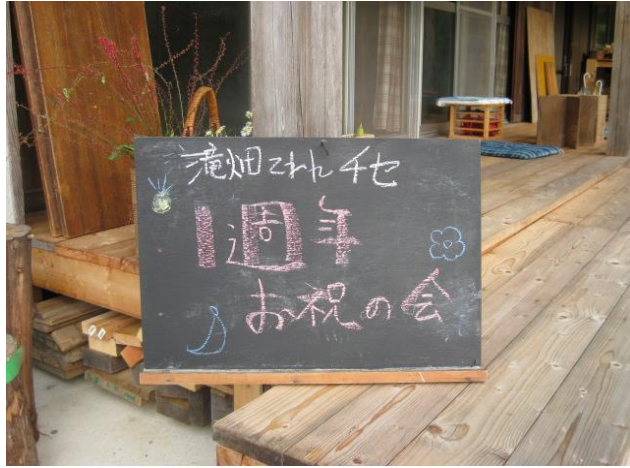 滝畑てわんチセ
1週年
お祝の会